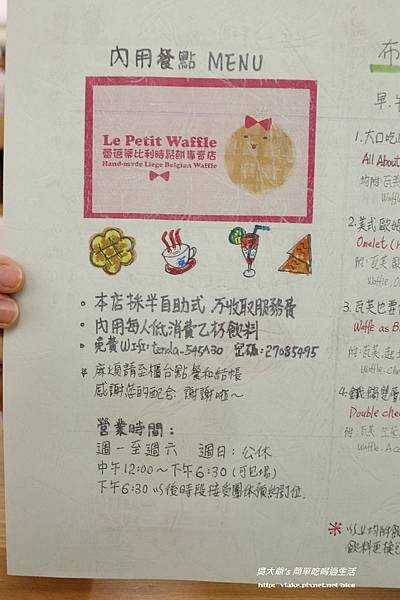 內用餐點 MENU
Le Petit Waffle
蕾蓓蒂比利時鬆餅專賣店
Hand-made Liege Belgian Waffle
本店採半自助式,不收取服務費
內用每人低消費乙杯飲料
免費Wifi:tenda_545A30 密碼:27085095
*麻煩請至櫃台點餐和結帳
感謝您的配合 謝謝啦~
營業時間:
週一至週六 週日:公休
中午12:00~下午6:30(可包場)
下午6:30以後時段接受團体預約訂位.
布
早.午
1.大口吃
All About
均附:瓦芙
Waffle
2.美式歐姆
Omelet (
附:瓦芙.
Waffle.
3.瓦芙也
Waffle as B
附:瓦芙.起士
Waffle.che
4.鐵鍋雙層
Double chee
附:瓦芙.生菜
Waffle.
※以上均附飲
飲料更換
吳大爺's 簡單吃喝過生活
http://lake.pixnet.net/blog